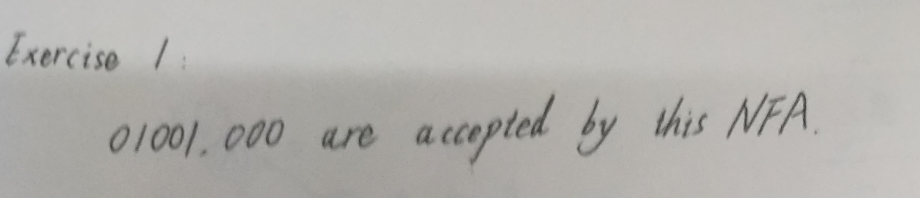 Exercise 1:
01001, 000 are accepted by this NFA.